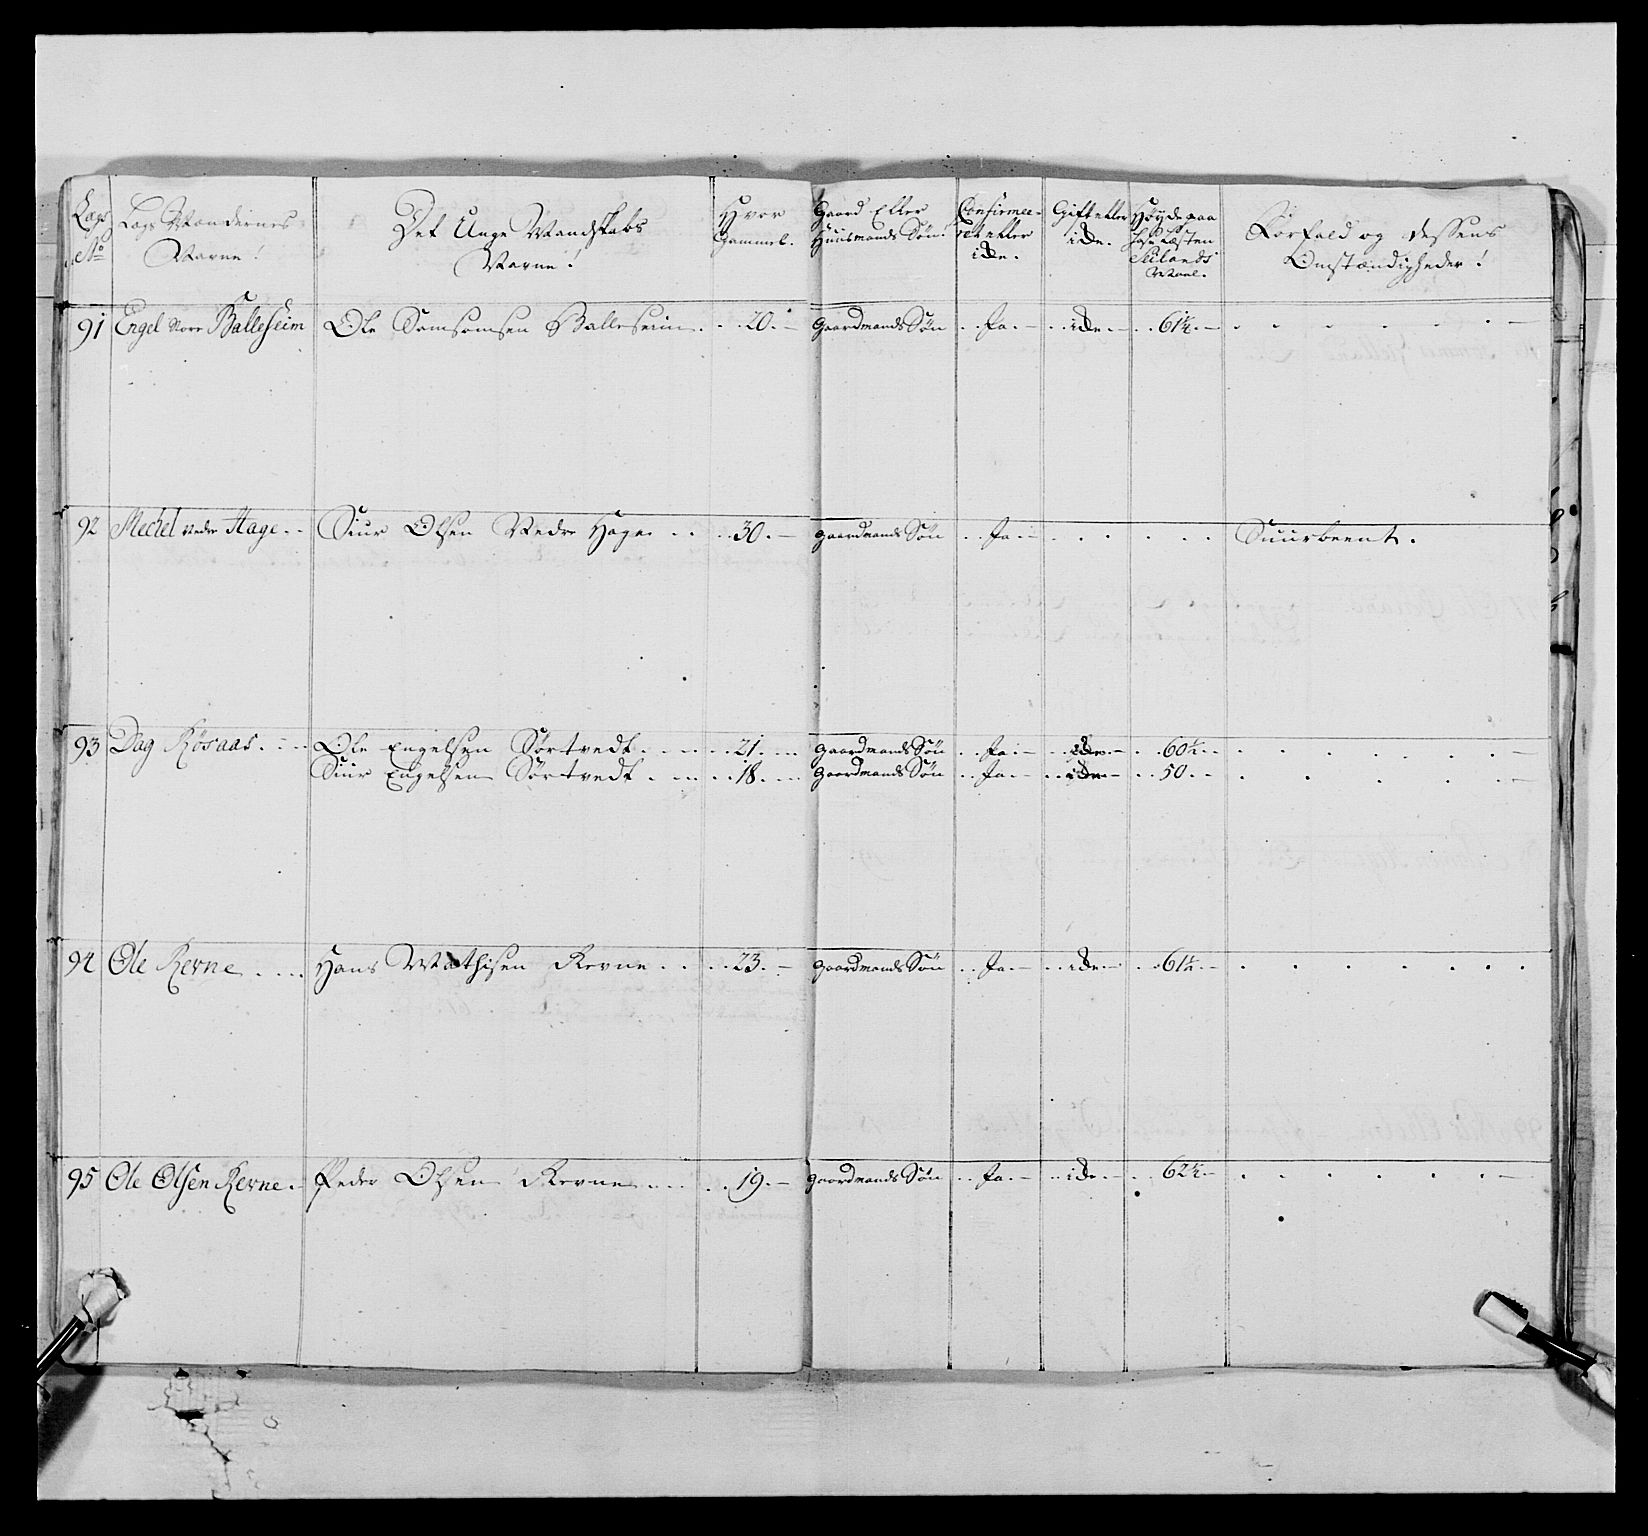 Lags No
Lags Mændernes Navne!
Det Unge Mandskabs Navne!
Hvor Gammel.
Gaard Eller Huusmands Søn.
Confirmeeret eller iche.
Gift eller iche.
Høyde paa hose Læsten Siælands Maal.
Forfald og dessens Omstændigheder!
91 Engel Store Balleseim Ole Samsomsen Balleseim . . 20. – gaardmands Søn . . Ja. – . . iche. – . . 61½. –
92 Mechel Nedre Hage. . . Siur Olsen Nedre Hage . . . . 30. – gaardmands Søn . . Ja. – . . . . . Suurbeent.
93 Dag Røsaas. . . . Ole Engelsen Sørtvedt . . . . 21. – gaardmands Søn . . Ja. – . . iche – . . 60½. –
Siur Engelsen Sørtvedt . . . . 18. – gaardmands Søn . . Ja. – . . iche – . . 50. –
94 Ole Revne . . . . Hans Mathisen Revne . . . . 23. – gaardmands Søn . . Ja. – . . iche. – . . 61½. –
95 Ole Olsen Revne. . Peder Olsen Revne . . . . 19. – gaardmands Søn . . Ja. – . . iche. – . . 62½. –